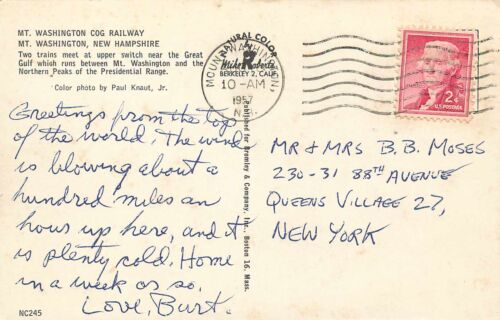 MT. WASHINGTON COG RAILWAY
MT. WASHINGTON, NEW HAMPSHIRE
Two trains meet at upper switch near the Great
Gulf which runs between Mt. Washington and the
Northern Peaks of the Presidential Range.
Color photo by Paul Knaut, Jr.
Greetings from the top
of the world. The wind
is blowing about a
hundred miles an
hour up here, and it
is plenty cold. Home
in a week or so.
Love, Burt.
NC245
NATURAL COLOR
Mike Roberts
BERKELEY 2, CALIF.
MOUNT WASHINGTON
10-AM
1957
N.H.
Published for Bromley & Company, Inc., Boston 16, Mass.
2¢
U.S. POSTAGE
MR & MRS B. B. MOSES
230-31 88TH AVENUE
QUEENS VILLAGE 27,
NEW YORK